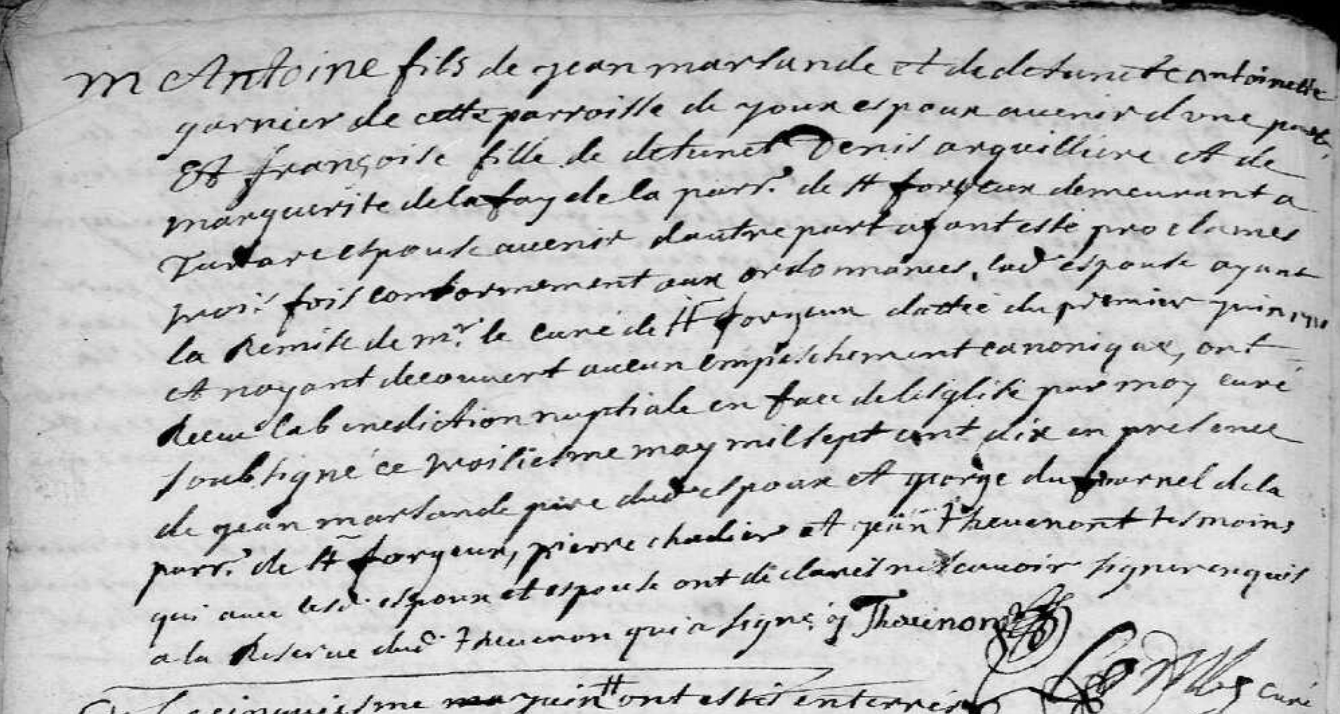 m Antoine fils de jean marsande et de defuncte antoinette
garnier de cette parroisse de joux espoux avenir d'une part,
Et françoise fille de defunct Denis arquilliere et de
marguerite de la fay de la parr. de st forgeux demeurant a
Tarare espouse avenir d'autre part ayant esté proclames
trois fois conformement aux ordonnances, lad. espouse ayant
la Remise de mr. le curé de st forgeux dattée du premier juin 1710
et nayant decouvert aucun empeschement canonique, ont
Receu la benediction nuptiale en face de l'esglise par moy curé
soubsigné ce troisiesme may mil sept cent dix en presence
de jean marsande pere dud. espoux et george du fournel de la
parr. de st forgeux, pierre chadier et jean Thevenont tesmoins
qui avec lesd. espoux et espouse ont déclarés ne scavoir signer enquis
a la Reserve dud. Thevenon qui a signé, Thevenon
curé
cinquiesme may juin ont estés enterrés